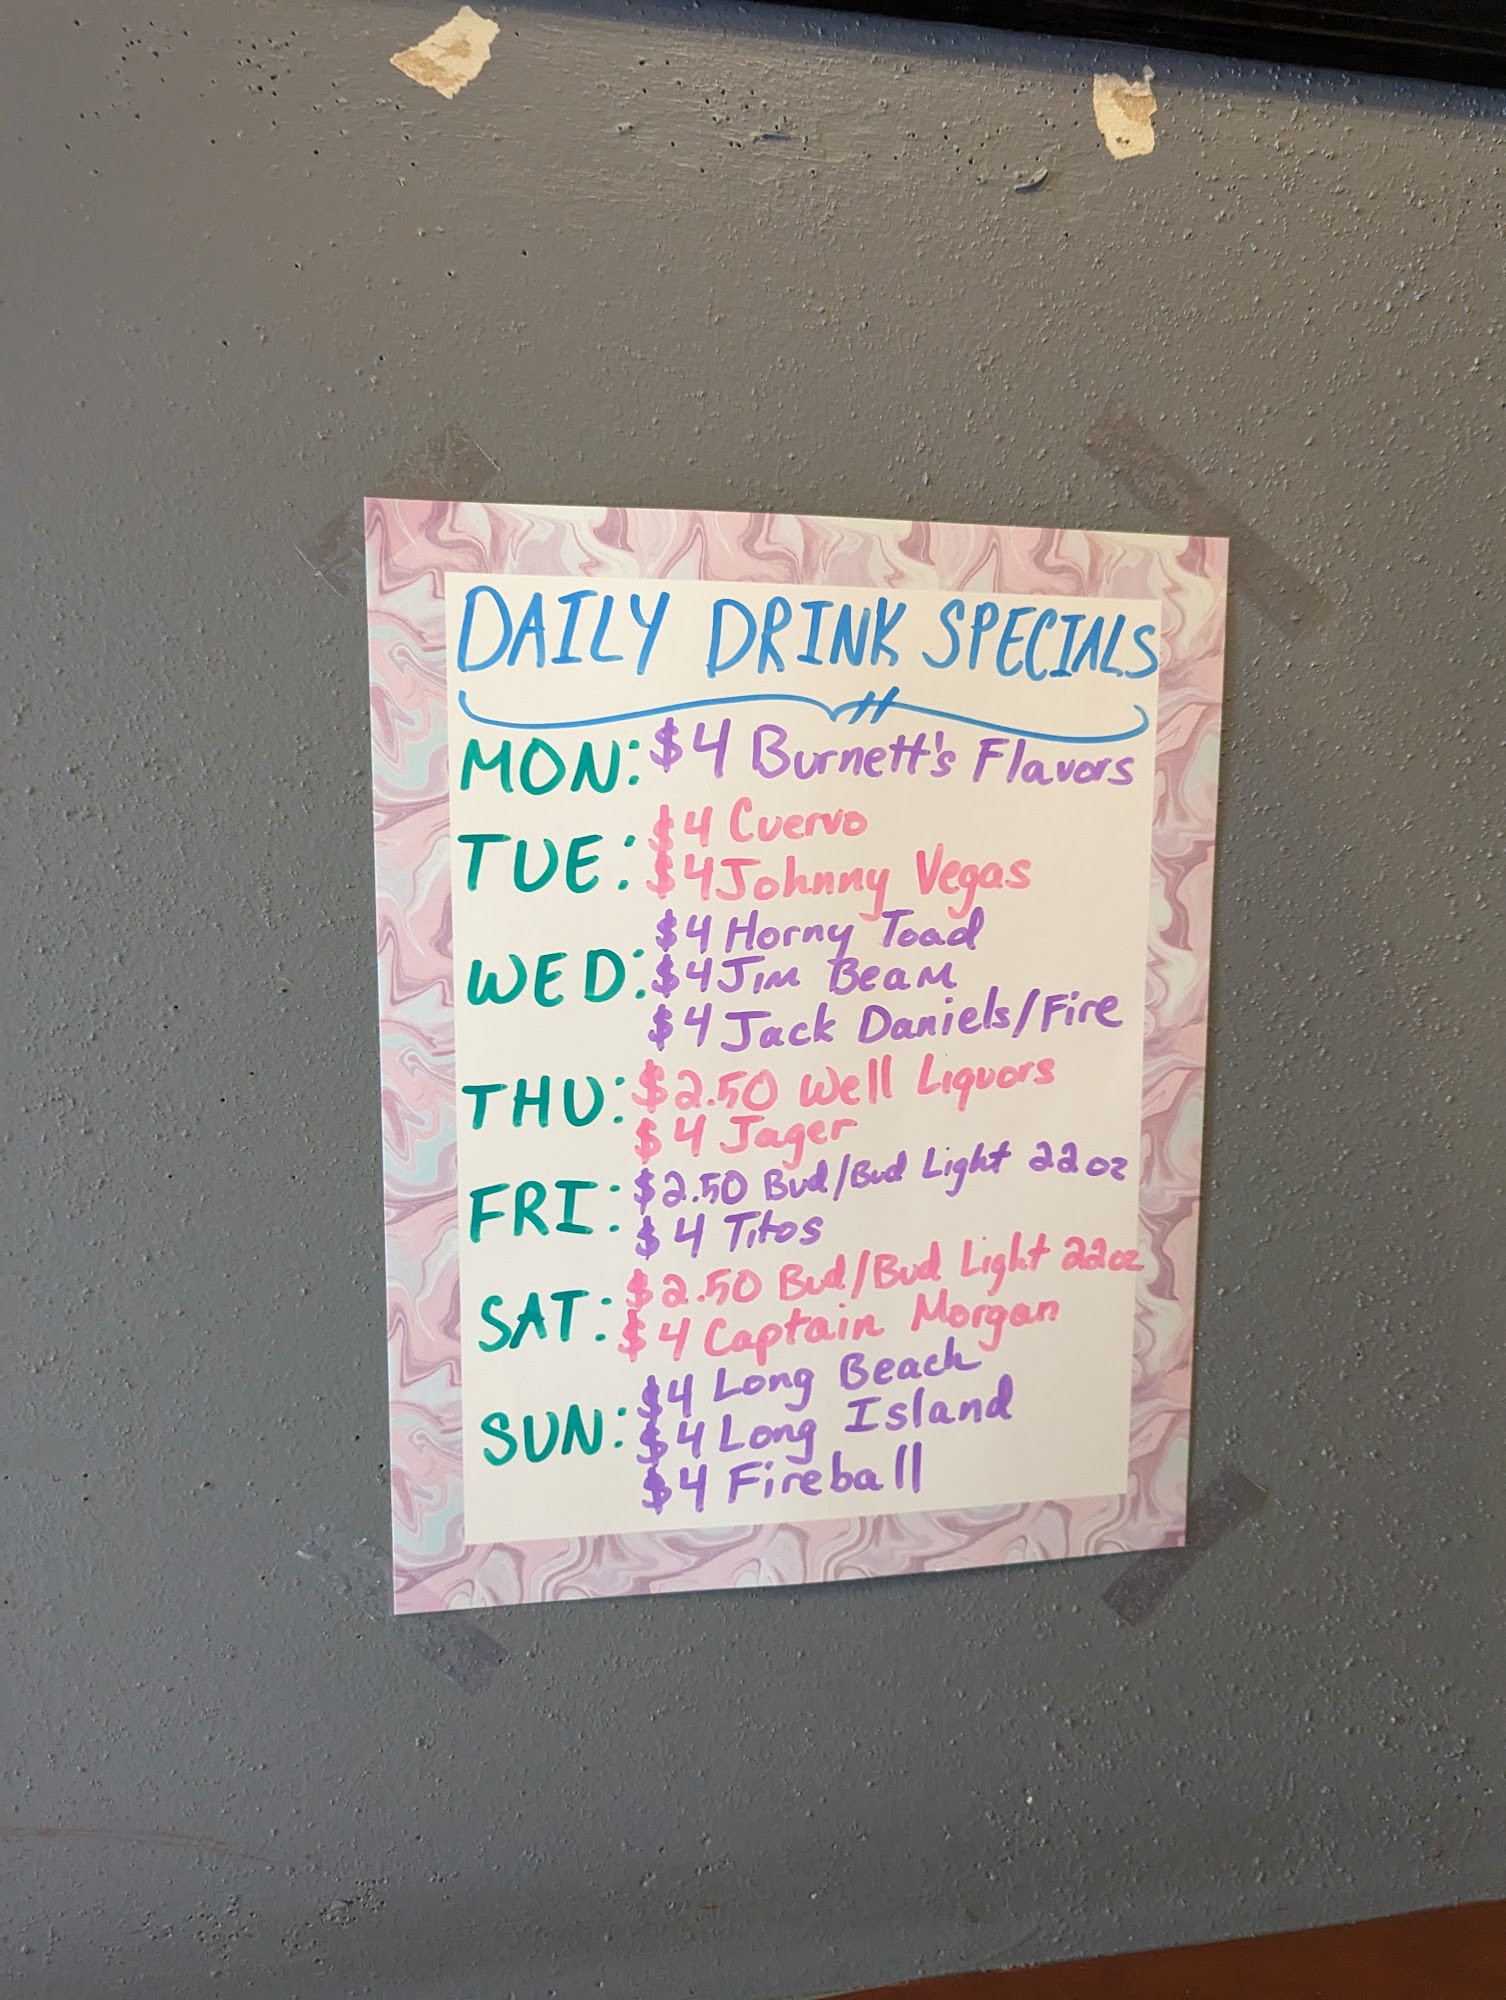 DAILY DRINK SPECIALS
MON: $4 Burnett's Flavors
TUE: $4 Cuervo
$4 Johnny Vegas
WED: $4 Horny Toad
$4 Jim Beam
$4 Jack Daniels/Fire
THU: $2.50 Well Liquors
$4 Jager
FRI: $2.50 Bud/Bud Light 22oz
$4 Titos
SAT: $2.50 Bud/Bud Light 22oz
$4 Captain Morgan
SUN: $4 Long Beach
$4 Long Island
$4 Fireball